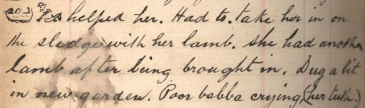 helped her. Had to. take her in on
the sledge with her lamb. She had another
lamb after being brought in. Dug a bit
in new garden. Poor babba crying, (her teeth.)